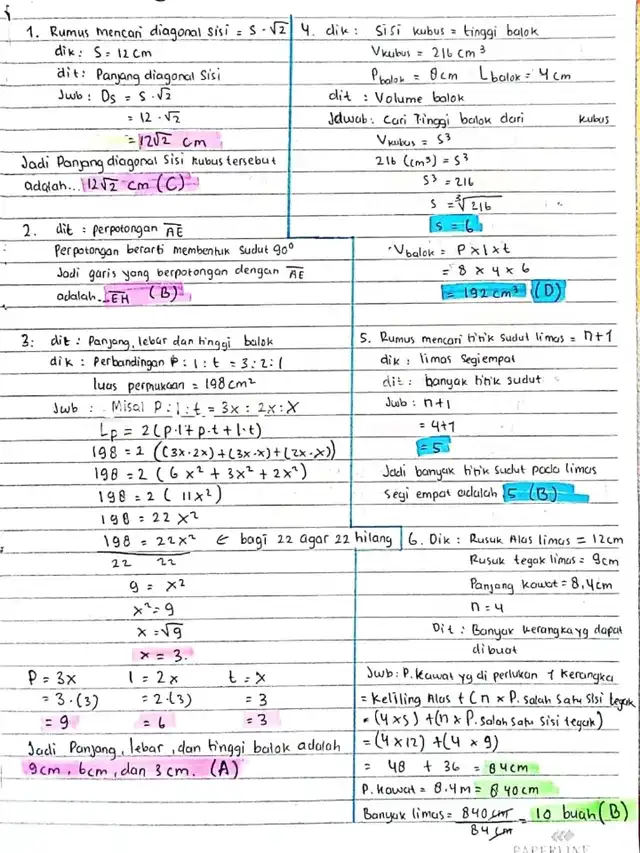 1. Rumus mencari diagonal sisi = S · √2
dik : S = 12 cm
dit : Panjang diagonal Sisi
Jwb : Ds = S · √2
= 12 · √2
= 12√2 cm
Jadi Panjang diagonal Sisi kubus tersebut
adalah... 12√2 cm (C)
2. dit : perpotongan AE
Perpotongan berarti membentuk Sudut 90°
Jadi garis yang berpotongan dengan AE
adalah. EH (B)
3. dit : Panjang, lebar dan tinggi balok
dik : Perbandingan P : l : t = 3 : 2 : 1
luas permukaan = 198 cm²
Jwb : Misal P : l : t = 3x : 2x : x
Lp = 2(p·l + p·t + l·t)
198 = 2 ((3x·2x) + (3x·x) + (2x·x))
198 = 2 (6x² + 3x² + 2x²)
198 = 2 (11x²)
198 = 22x²
198 = 22x² ← bagi 22 agar 22 hilang
22 22
9 = x²
x² = 9
x = √9
x = 3.
P = 3x l = 2x t = x
= 3·(3) = 2·(3) = 3
= 9 = 6 = 3
Jadi Panjang, lebar, dan tinggi balok adalah
9cm, 6cm, dan 3 cm. (A)
4. dik : Sisi kubus = tinggi balok
Vkubus = 216 cm³
Pbalok = 8cm Lbalok = 4cm
dit : Volume balok
Jawab : Cari Tinggi balok dari kubus
Vkubus = S³
216 (cm³) = S³
S³ = 216
S = ³√216
S = 6
Vbalok = P x l x t
= 8 x 4 x 6
= 192 cm³ (D)
5. Rumus mencari titik sudut limas = n+1
dik : limas segiempat
dit : banyak titik sudut
Jwb : n+1
= 4+1
= 5
Jadi banyak titik Sudut pada limas
segi empat adalah 5 (B)
6. Dik : Rusuk Alas limas = 12cm
Rusuk tegak limas = 9cm
Panjang kawat = 8,4cm
n = 4
Dit : Banyak kerangka yg dapat
dibuat
Jwb : P. kawat yg di perlukan 1 kerangka
= Keliling Alas + (n x P. salah satu sisi tegak)
= (4 x s) + (n x P. salah satu sisi tegak)
= (4 x 12) + (4 x 9)
= 48 + 36 = 84cm
P. kawat = 8.4m = 840cm
Banyak limas = 840 cm = 10 buah (B)
84 cm
PAPERLINE